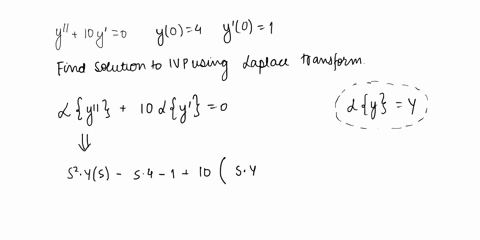 y'' + 10y' = 0 y(0) = 4 y'(0) = 1
Find solution to IVP using Laplace Transform.
ℒ{y''} + 10 ℒ{y'} = 0
ℒ{y} = Y
⇓
s²·Y(s) - s·4 - 1 + 10 ( s·Y